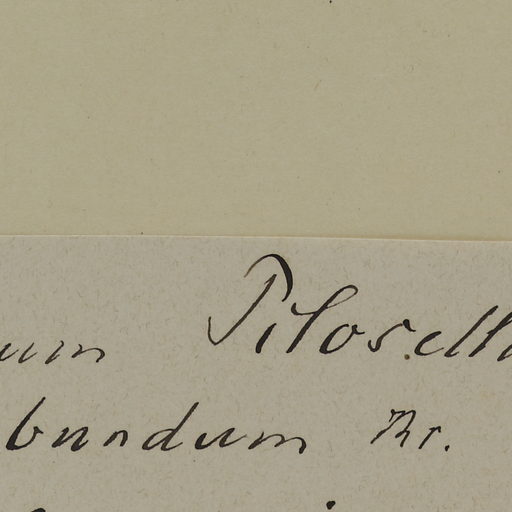 um Pilosella
bundum Kr.